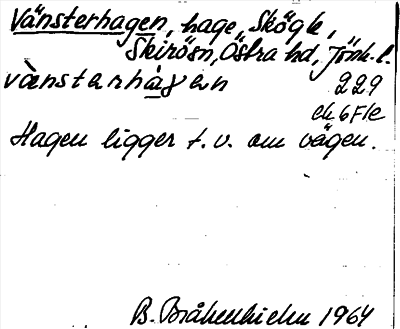 Vänsterhagen, hage, Skögle,
Skirösn, Östra hd, Jönk. l.
vànstərháɣən 229
ek 6F1e
Hagen ligger t.v. om vägen.
B. Bråkenhielm 1964